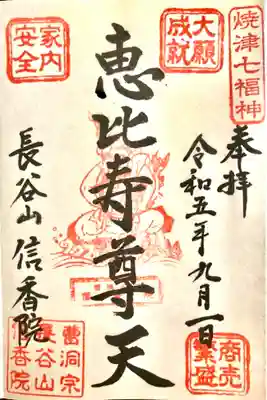 焼津七福神
奉拝
令和五年九月一日
大願
成就
商売
繁盛
恵比寿尊天
家内
安全
長谷山 信香院
曹洞宗
長谷山
信香院